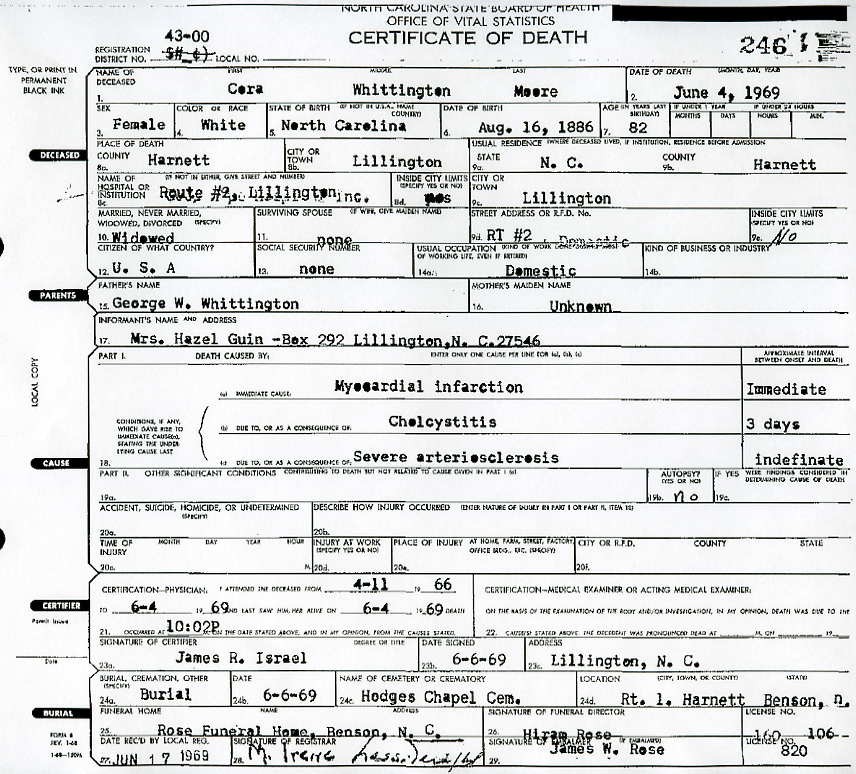 NORTH CAROLINA STATE BOARD OF HEALTH
OFFICE OF VITAL STATISTICS
CERTIFICATE OF DEATH
43-00
REGISTRATION DISTRICT NO. LOCAL NO.
246
TYPE, OR PRINT IN
PERMANENT
BLACK INK
NAME OF DECEASED FIRST MIDDLE LAST DATE OF DEATH (MONTH, DAY, YEAR)
1. Cora Whittington Moore 2. June 4, 1969
SEX COLOR OR RACE STATE OF BIRTH (IF NOT IN U.S.A., NAME COUNTRY) DATE OF BIRTH AGE (IN YEARS LAST BIRTHDAY) IF UNDER 1 YEAR IF UNDER 24 HOURS
MONTHS DAYS HOURS MIN.
3. Female 4. White 5. North Carolina 6. Aug. 16, 1886 7. 82
DECEASED
PLACE OF DEATH USUAL RESIDENCE (WHERE DECEASED LIVED, IF INSTITUTION, RESIDENCE BEFORE ADMISSION
COUNTY Harnett CITY OR TOWN Lillington STATE N. C. COUNTY Harnett
8a. 8b. 9a. 9b.
NAME OF HOSPITAL OR INSTITUTION (IF NOT IN EITHER, GIVE STREET AND NUMBER) INSIDE CITY LIMITS (SPECIFY YES OR NO) CITY OR TOWN
8c. Route #2, Lillington Inc. 8d. 9c. Lillington
MARRIED, NEVER MARRIED, WIDOWED, DIVORCED (SPECIFY) SURVIVING SPOUSE (IF WIFE, GIVE MAIDEN NAME) STREET ADDRESS OR R.F.D. No. INSIDE CITY LIMITS (SPECIFY YES OR NO)
10. Widowed 11. none 9d. RT #2 Domestic 9e. No
CITIZEN OF WHAT COUNTRY? SOCIAL SECURITY NUMBER USUAL OCCUPATION (KIND OF WORK DONE DURING MOST OF WORKING LIFE, EVEN IF RETIRED) KIND OF BUSINESS OR INDUSTRY
12. U. S. A 13. none 14a. Domestic 14b.
PARENTS
FATHER'S NAME MOTHER'S MAIDEN NAME
15. George W. Whittington 16. Unknown
INFORMANT'S NAME AND ADDRESS
17. Mrs. Hazel Guin -Box 292 Lillington,N. C.27546
LOCAL COPY
PART I. DEATH CAUSED BY: ENTER ONLY ONE CAUSE PER LINE FOR (a), (b), (c) APPROXIMATE INTERVAL BETWEEN ONSET AND DEATH
(a) IMMEDIATE CAUSE: Myocardial infarction Immediate
CONDITIONS, IF ANY, WHICH GAVE RISE TO IMMEDIATE CAUSE(a), STATING THE UNDERLYING CAUSE LAST
(b) DUE TO, OR AS A CONSEQUENCE OF: Cholcystitis 3 days
CAUSE
18. (c) DUE TO, OR AS A CONSEQUENCE OF: Severe arteriosclerosis indefinate
PART II. OTHER SIGNIFICANT CONDITIONS CONTRIBUTING TO DEATH BUT NOT RELATED TO CAUSE GIVEN IN PART I (a) AUTOPSY? (YES OR NO) IF YES WERE FINDINGS CONSIDERED IN DETERMINING CAUSE OF DEATH
19a. 19b. no 19c.
ACCIDENT, SUICIDE, HOMICIDE, OR UNDETERMINED (SPECIFY) DESCRIBE HOW INJURY OCCURRED (ENTER NATURE OF INJURY IN PART I OR PART II, ITEM 18)
20a. 20b.
TIME OF INJURY MONTH DAY YEAR HOUR INJURY AT WORK (SPECIFY YES OR NO) PLACE OF INJURY AT HOME, FARM, STREET, FACTORY, OFFICE BLDG., ETC. (SPECIFY) CITY OR R.F.D. COUNTY STATE
20c. M. 20d. 20e. 20f.
CERTIFIER
CERTIFICATION—PHYSICIAN: I ATTENDED THE DECEASED FROM 4-11 19 66 CERTIFICATION—MEDICAL EXAMINER OR ACTING MEDICAL EXAMINER:
TO 6-4 19 69 AND LAST SAW HIM/HER ALIVE ON 6-4 19 69 DEATH ON THE BASIS OF THE EXAMINATION OF THE BODY AND/OR INVESTIGATION, IN MY OPINION, DEATH WAS DUE TO THE
Permit Issued
21. OCCURRED AT 10:02P M. ON THE DATE STATED ABOVE, AND IN MY OPINION, FROM THE CAUSES STATED. 22. CAUSE(S) STATED ABOVE THE DECEDENT WAS PRONOUNCED DEAD AT M, ON 19
SIGNATURE OF CERTIFIER DEGREE OR TITLE DATE SIGNED ADDRESS
Date
23a. James R. Israel 23b. 6-6-69 23c. Lillington, N. C.
BURIAL, CREMATION, OTHER (SPECIFY) DATE NAME OF CEMETERY OR CREMATORY LOCATION (CITY, TOWN, OR COUNTY) (STATE)
24a. Burial 24b. 6-6-69 24c. Hodges Chapel Cem. 24d. Rt. 1. Harnett Benson, n.
BURIAL
FUNERAL HOME NAME ADDRESS SIGNATURE OF FUNERAL DIRECTOR LICENSE NO.
25. Rose Funeral Home, Benson, N. C. 26. Hiram Rose 160 106--
FORM 8
REV. 1-68
DATE REC'D BY LOCAL REG. SIGNATURE OF REGISTRAR SIGNATURE OF EMBALMER (IF EMBALMED) LICENSE NO.
27. JUN 17 1969 28. M. Irene 29. James W. Rose 820